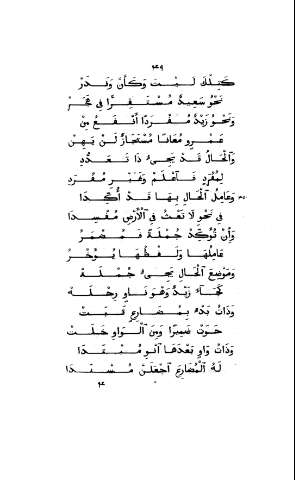 كَتِلْكَ لَيْتَ وَكَأَنَّ وَنَدَرْ
نَحْوُ سَعِيدٌ مُسْتَقِرًّا فِي هَجَرْ
وَنَحْوُ زَيْدٌ مُفْرَدًا أَنْفَعُ مِنْ
عَمْرٍو مُعَانًا مُسْتَجَازٌ لَنْ يَهِنْ
وَٱلْحَالُ قَدْ يَجِىءُ ذَا تَعَدُّدِ
لِمُفْرَدٍ فَٱعْلَمْ وَغَيْرِ مُفْرَدِ
وَعَامِلُ ٱلْحَالِ بِهَا قَدْ أُكِّدَا
فِي نَحْوِ لَا تَعْثَ فِي ٱلْأَرْضِ مُفْسِدَا
وَإِنْ تُؤَكِّدْ جُمْلَةً فَمُضْمَرُ
عَامِلُهَا وَلَفْظُهَا يُؤَخَّرُ
وَمَوْضِعَ ٱلْحَالِ يَجِىءُ جُمْلَهْ
كَجَاءَ زَيْدٌ وَهْوَ نَاوٍ رِحْلَهْ
وَذَاتُ بَدْءٍ بِمُضَارِعٍ ثَبَتْ
حَوَتْ ضَمِيرًا وَمِنَ ٱلْوَاوِ خَلَتْ
وَذَاتُ وَاوٍ بَعْدَهَا ٱنْوِ مُبْتَدَا
لَهُ ٱلْمُضَارِعَ ٱجْعَلَنَّ مُسْنَدَا